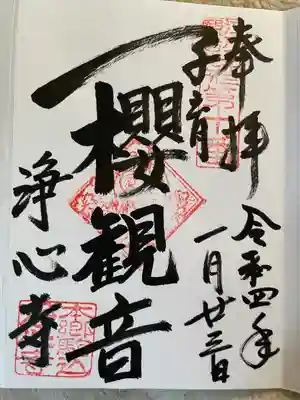 奉拝
令和四年
一月廿三日
子育
櫻観音
浄心寺